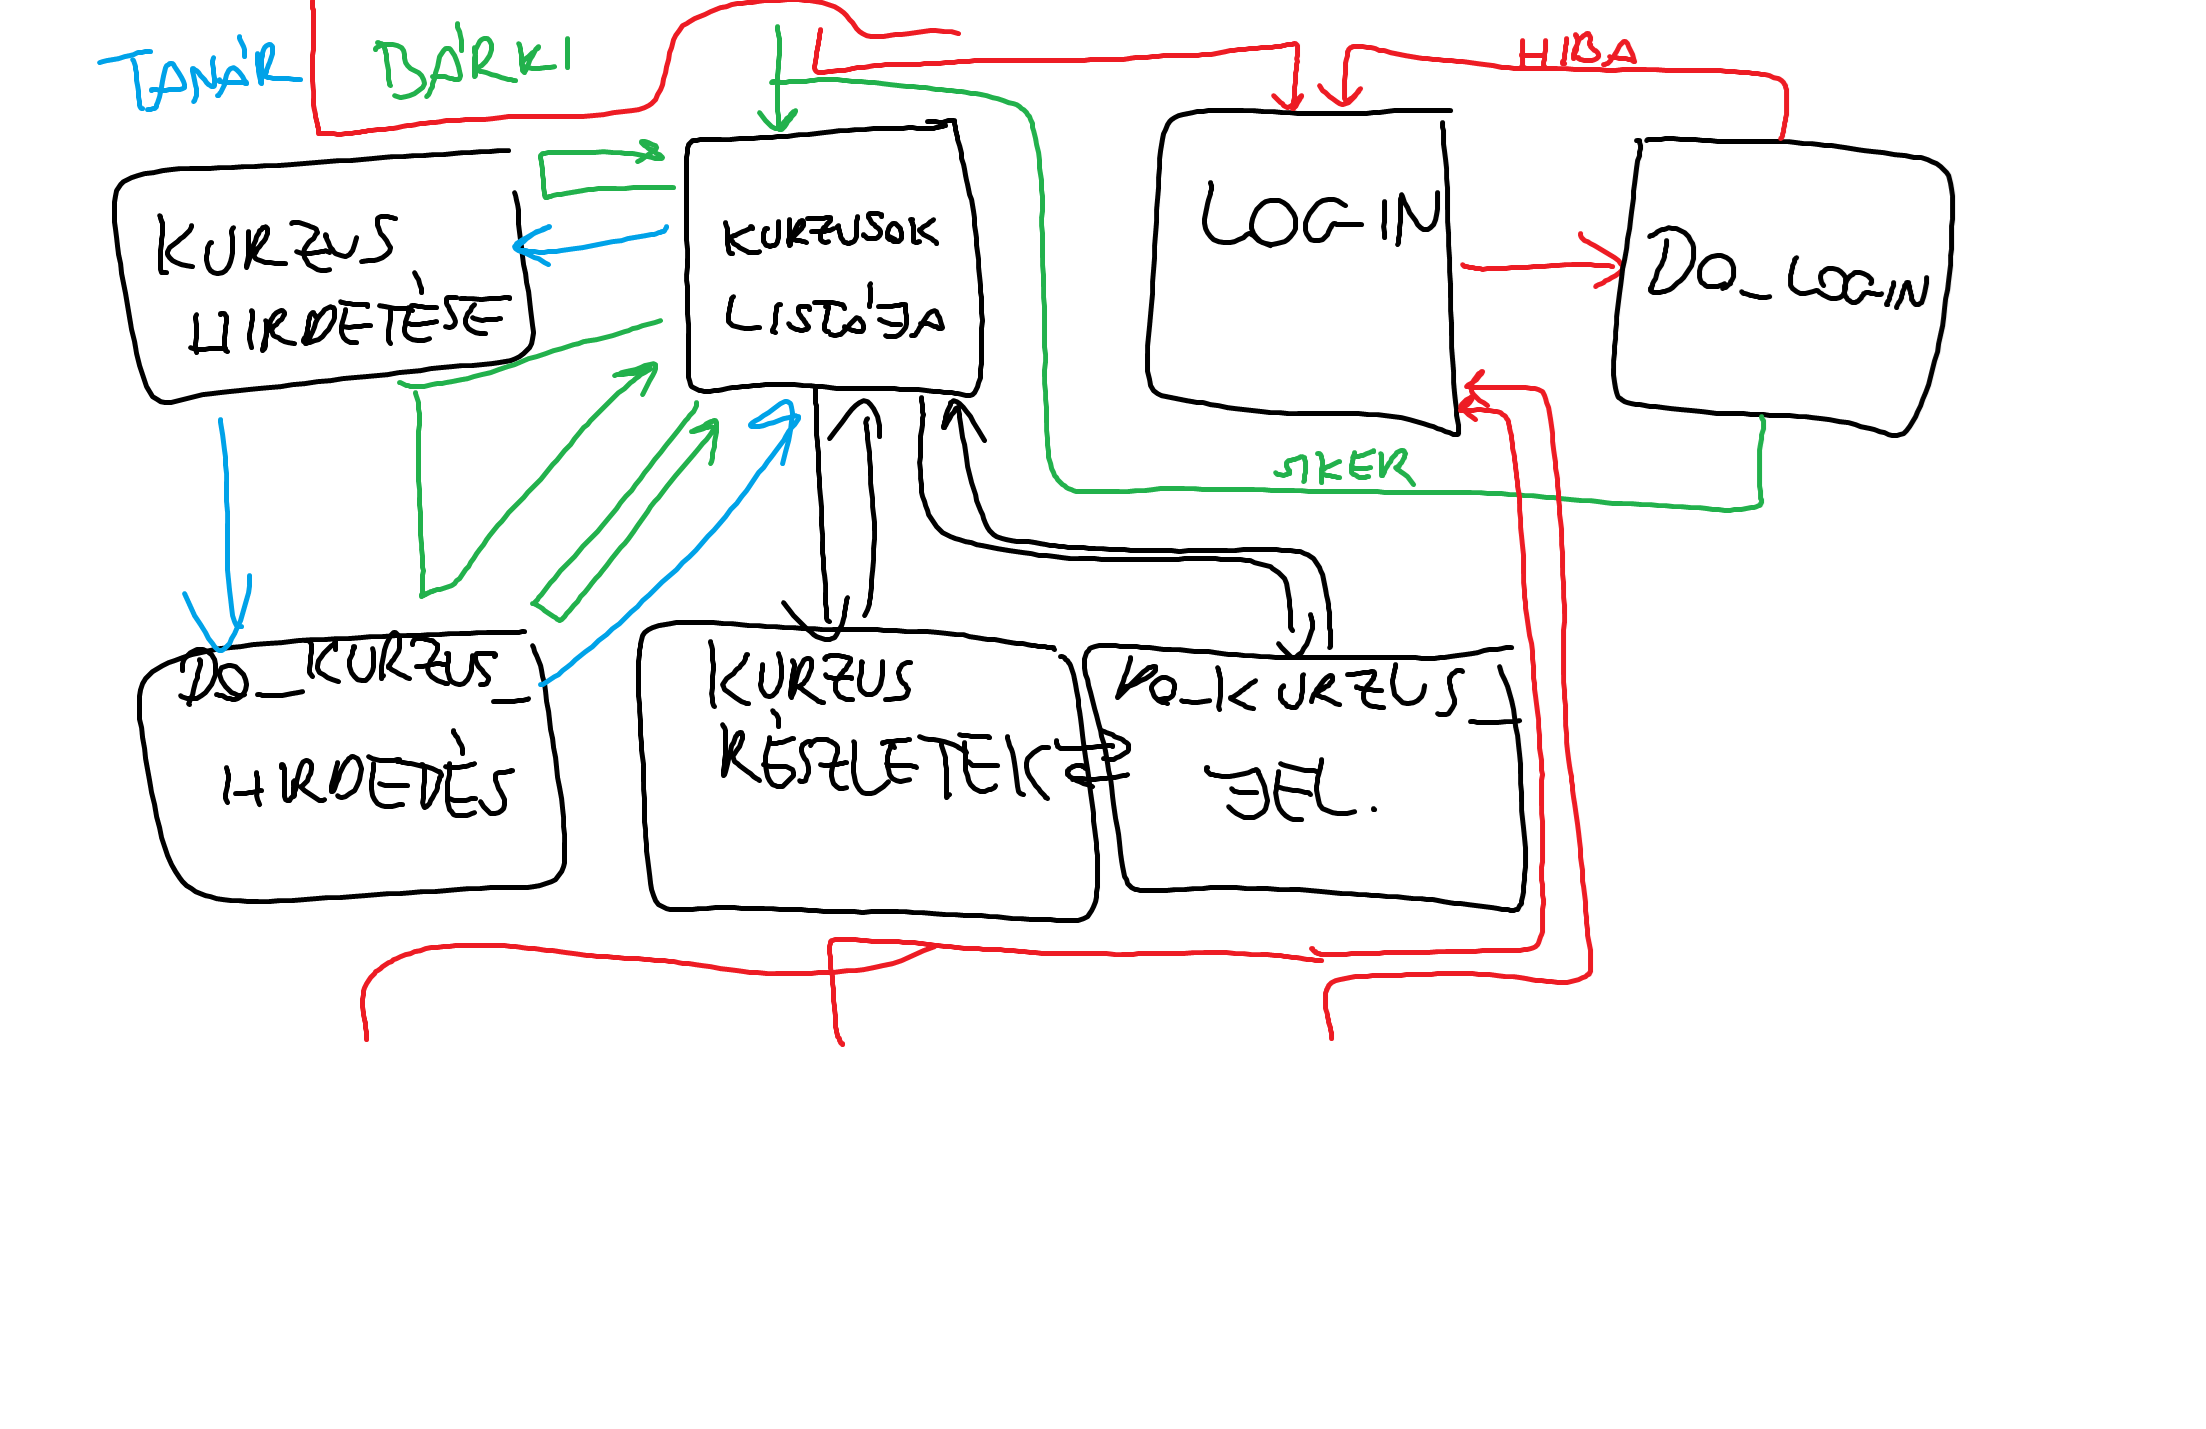 TANÁR
BÁRKI
HIBA
KURZUS
HIRDETÉSE
KURZUSOK
LISTÁJA
LOGIN
DO_LOGIN
SIKER
DO_KURZUS_
HIRDETÉS
KURZUS
RÉSZLETEK
DO_KURZUS_
JEL.